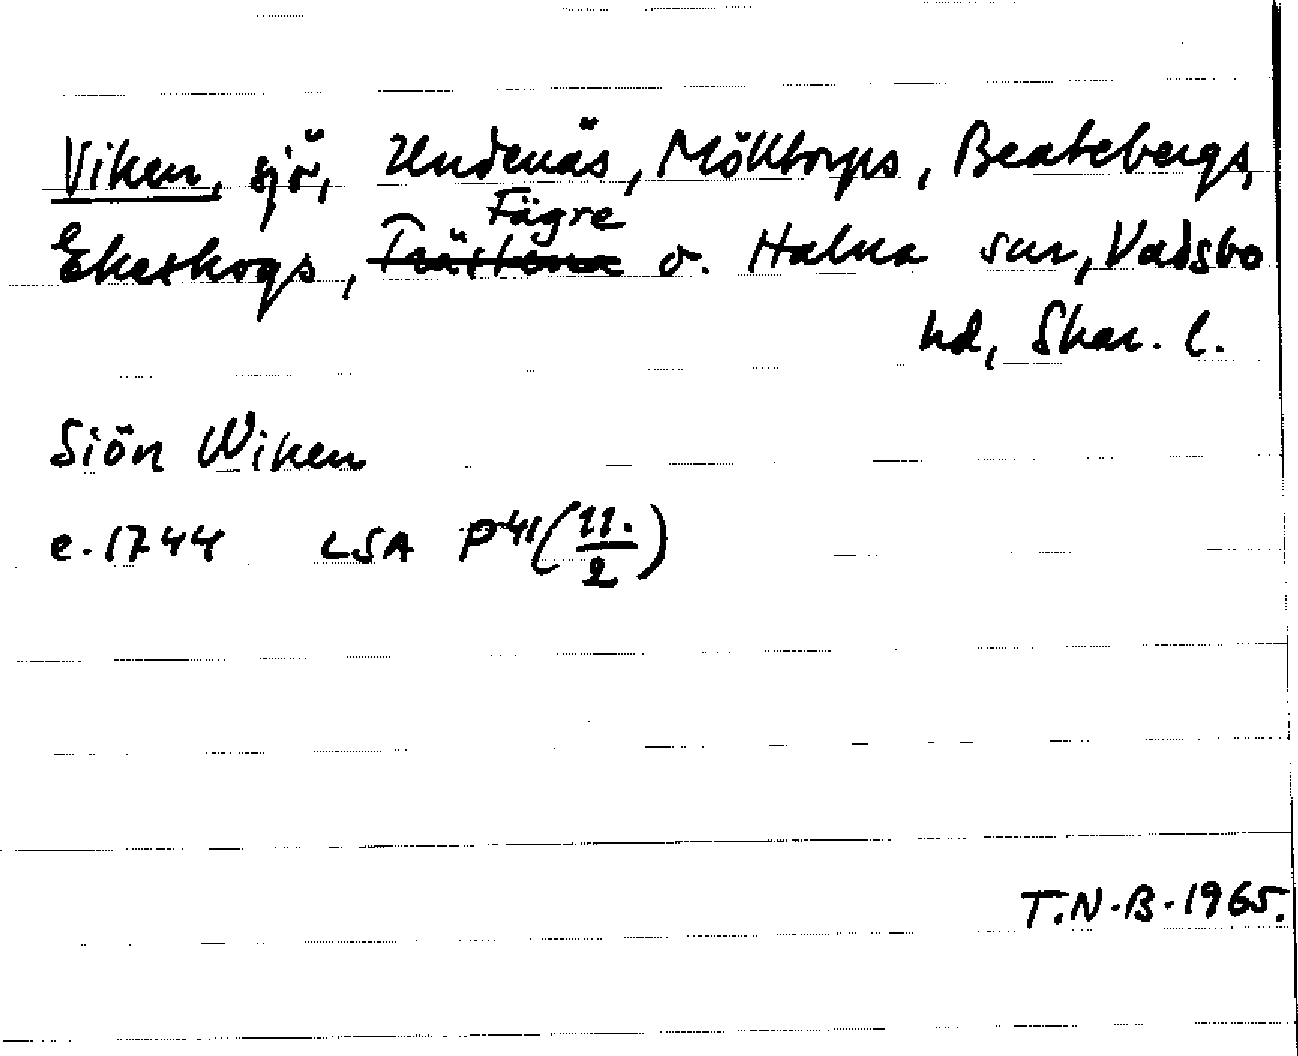 Viken, sjö, Undenäs, Mölltorps, Beatebergs,
Fägre
Ekeskogs, o. Halna snr, Vadsbo
hd, Skar. l.
Siön Wiken
c. 1744 LSA P41(11./2)
T.N.B. 1965.